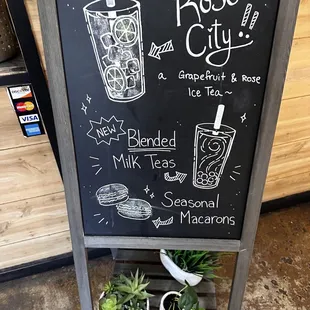 Rose
City
a Grapefruit & Rose
Ice Tea~
NEW
Blended
Milk Teas
Seasonal
Macarons
MasterCard
VISA